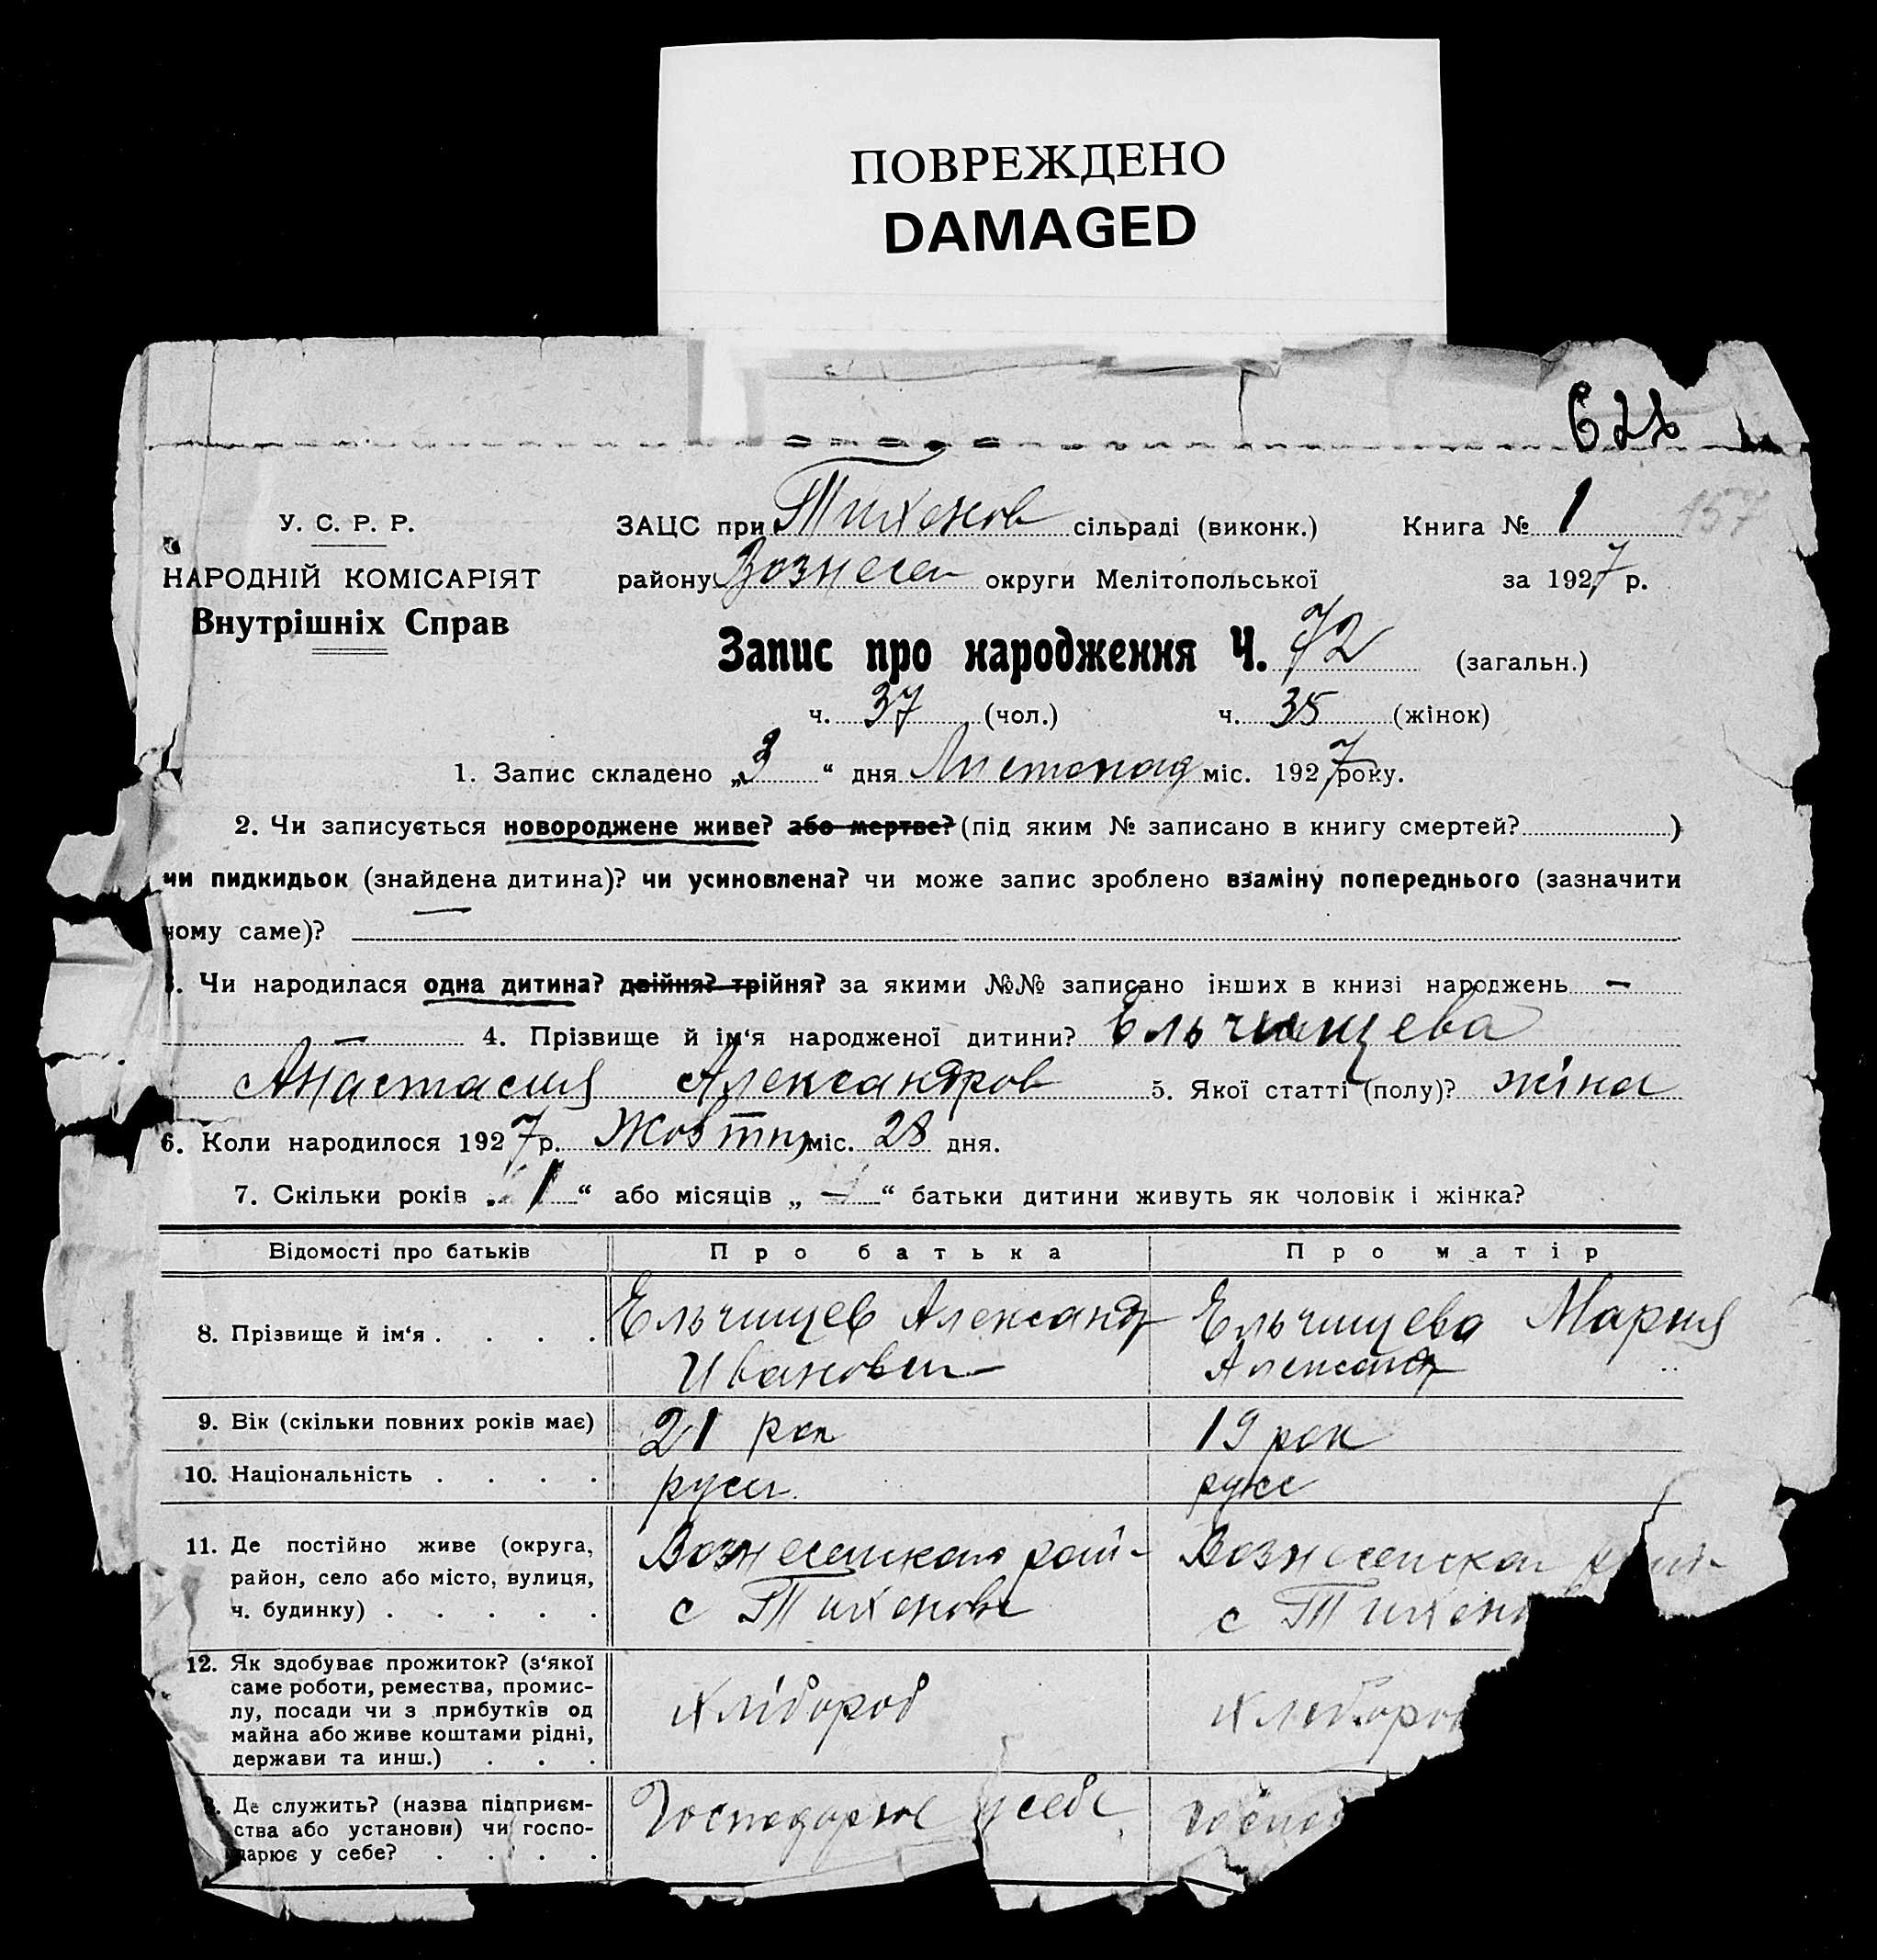 ПОВРЕЖДЕНО
DAMAGED
628
157
У. С. Р. Р.
НАРОДНІЙ КОМІСАРІЯТ
Внутрішніх Справ
ЗАЦС при Тихонов сільраді (виконк.) Книга № 1
району Вознесен округи Мелітопольської за 1927 р.
Запис про народження Ч. 72 (загальн.)
ч. 37 (чол.) ч. 35 (жінок)
1. Запис складено „3“ дня Листопад міс. 1927 року.
2. Чи записується новороджене живе? або мертве? (під яким № записано в книгу смертей? )
чи пидкидьок (знайдена дитина)? чи усиновлена? чи може запис зроблено взаміну попереднього (зазначити
чому саме)?
3. Чи народилася одна дитина? двійня? трійня? за якими №№ записано інших в книзі народжень —
— 4. Прізвище й ім‘я народженої дитини? Ельчищева
Анастасия Александров 5. Якої статті (полу)? жіна
6. Коли народилося 1927 р. Жовтня міс. 28 дня.
7. Скільки років „1“ або місяців „—“ батьки дитини живуть як чоловік і жінка?
Відомості про батьків Про батька Про матір
8. Прізвище й ім‘я . . . . Ельчищев Александр Ельчищева Мария
Иванович Александр
9. Вік (скільки повних років має) 21 рок 19 рок
10. Національність . . . . русс русс
11. Де постійно живе (округа,
район, село або місто, вулиця,
ч. будинку) . . . . .
Вознесенскаго рай-
с Тихоновк
Вознесенскаг
с Тихон
12. Як здобуває прожиток? (з‘якої
саме роботи, ремества, промис-
лу, посади чи з прибутків од
майна або живе коштами рідні,
держави та инш.) . . .
хлібороб
хлебороб
Де служить? (назва підприєм-
ства або установи) чи госпо-
дарює у себе? . . . .
Господарює у себе
господ